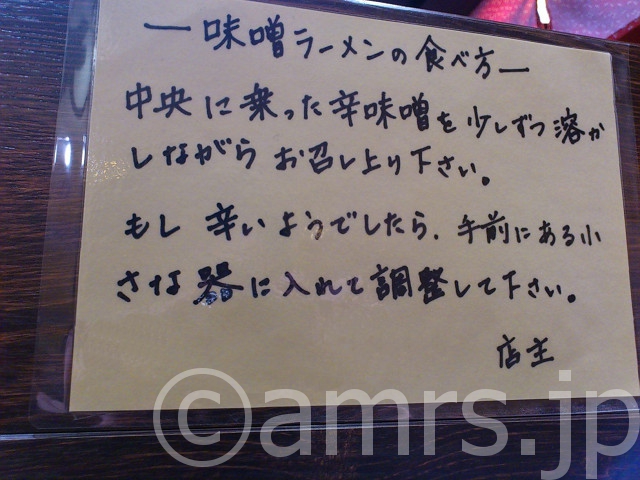 ー味噌ラーメンの食べ方ー
中央に乗った辛味噌を少しずつ溶か
しながらお召し上り下さい。
もし辛いようでしたら、手前にある小
さな器に入れて調整して下さい。
店主
©amrs.jp